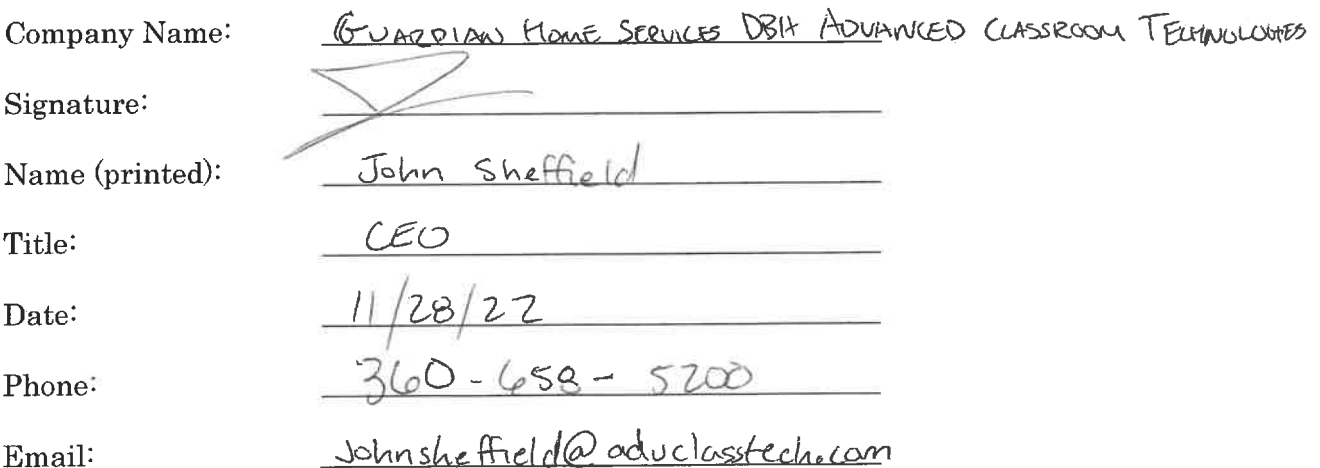 Company Name: GUARDIAN HOME SERVICES DBA ADVANCED CLASSROOM TECHNOLOGIES
Signature:
Name (printed): John Sheffield
Title: CEO
Date: 11/28/22
Phone: 360-658-5200
Email: Johnsheffield@advclasstech.com